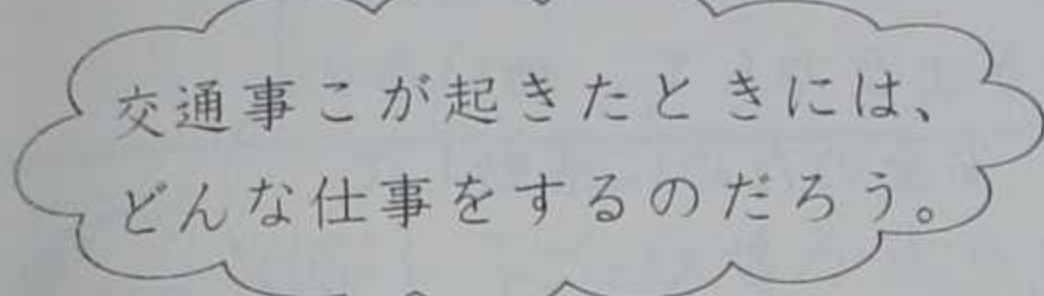 交通事こが起きたときには、
どんな仕事をするのだろう。